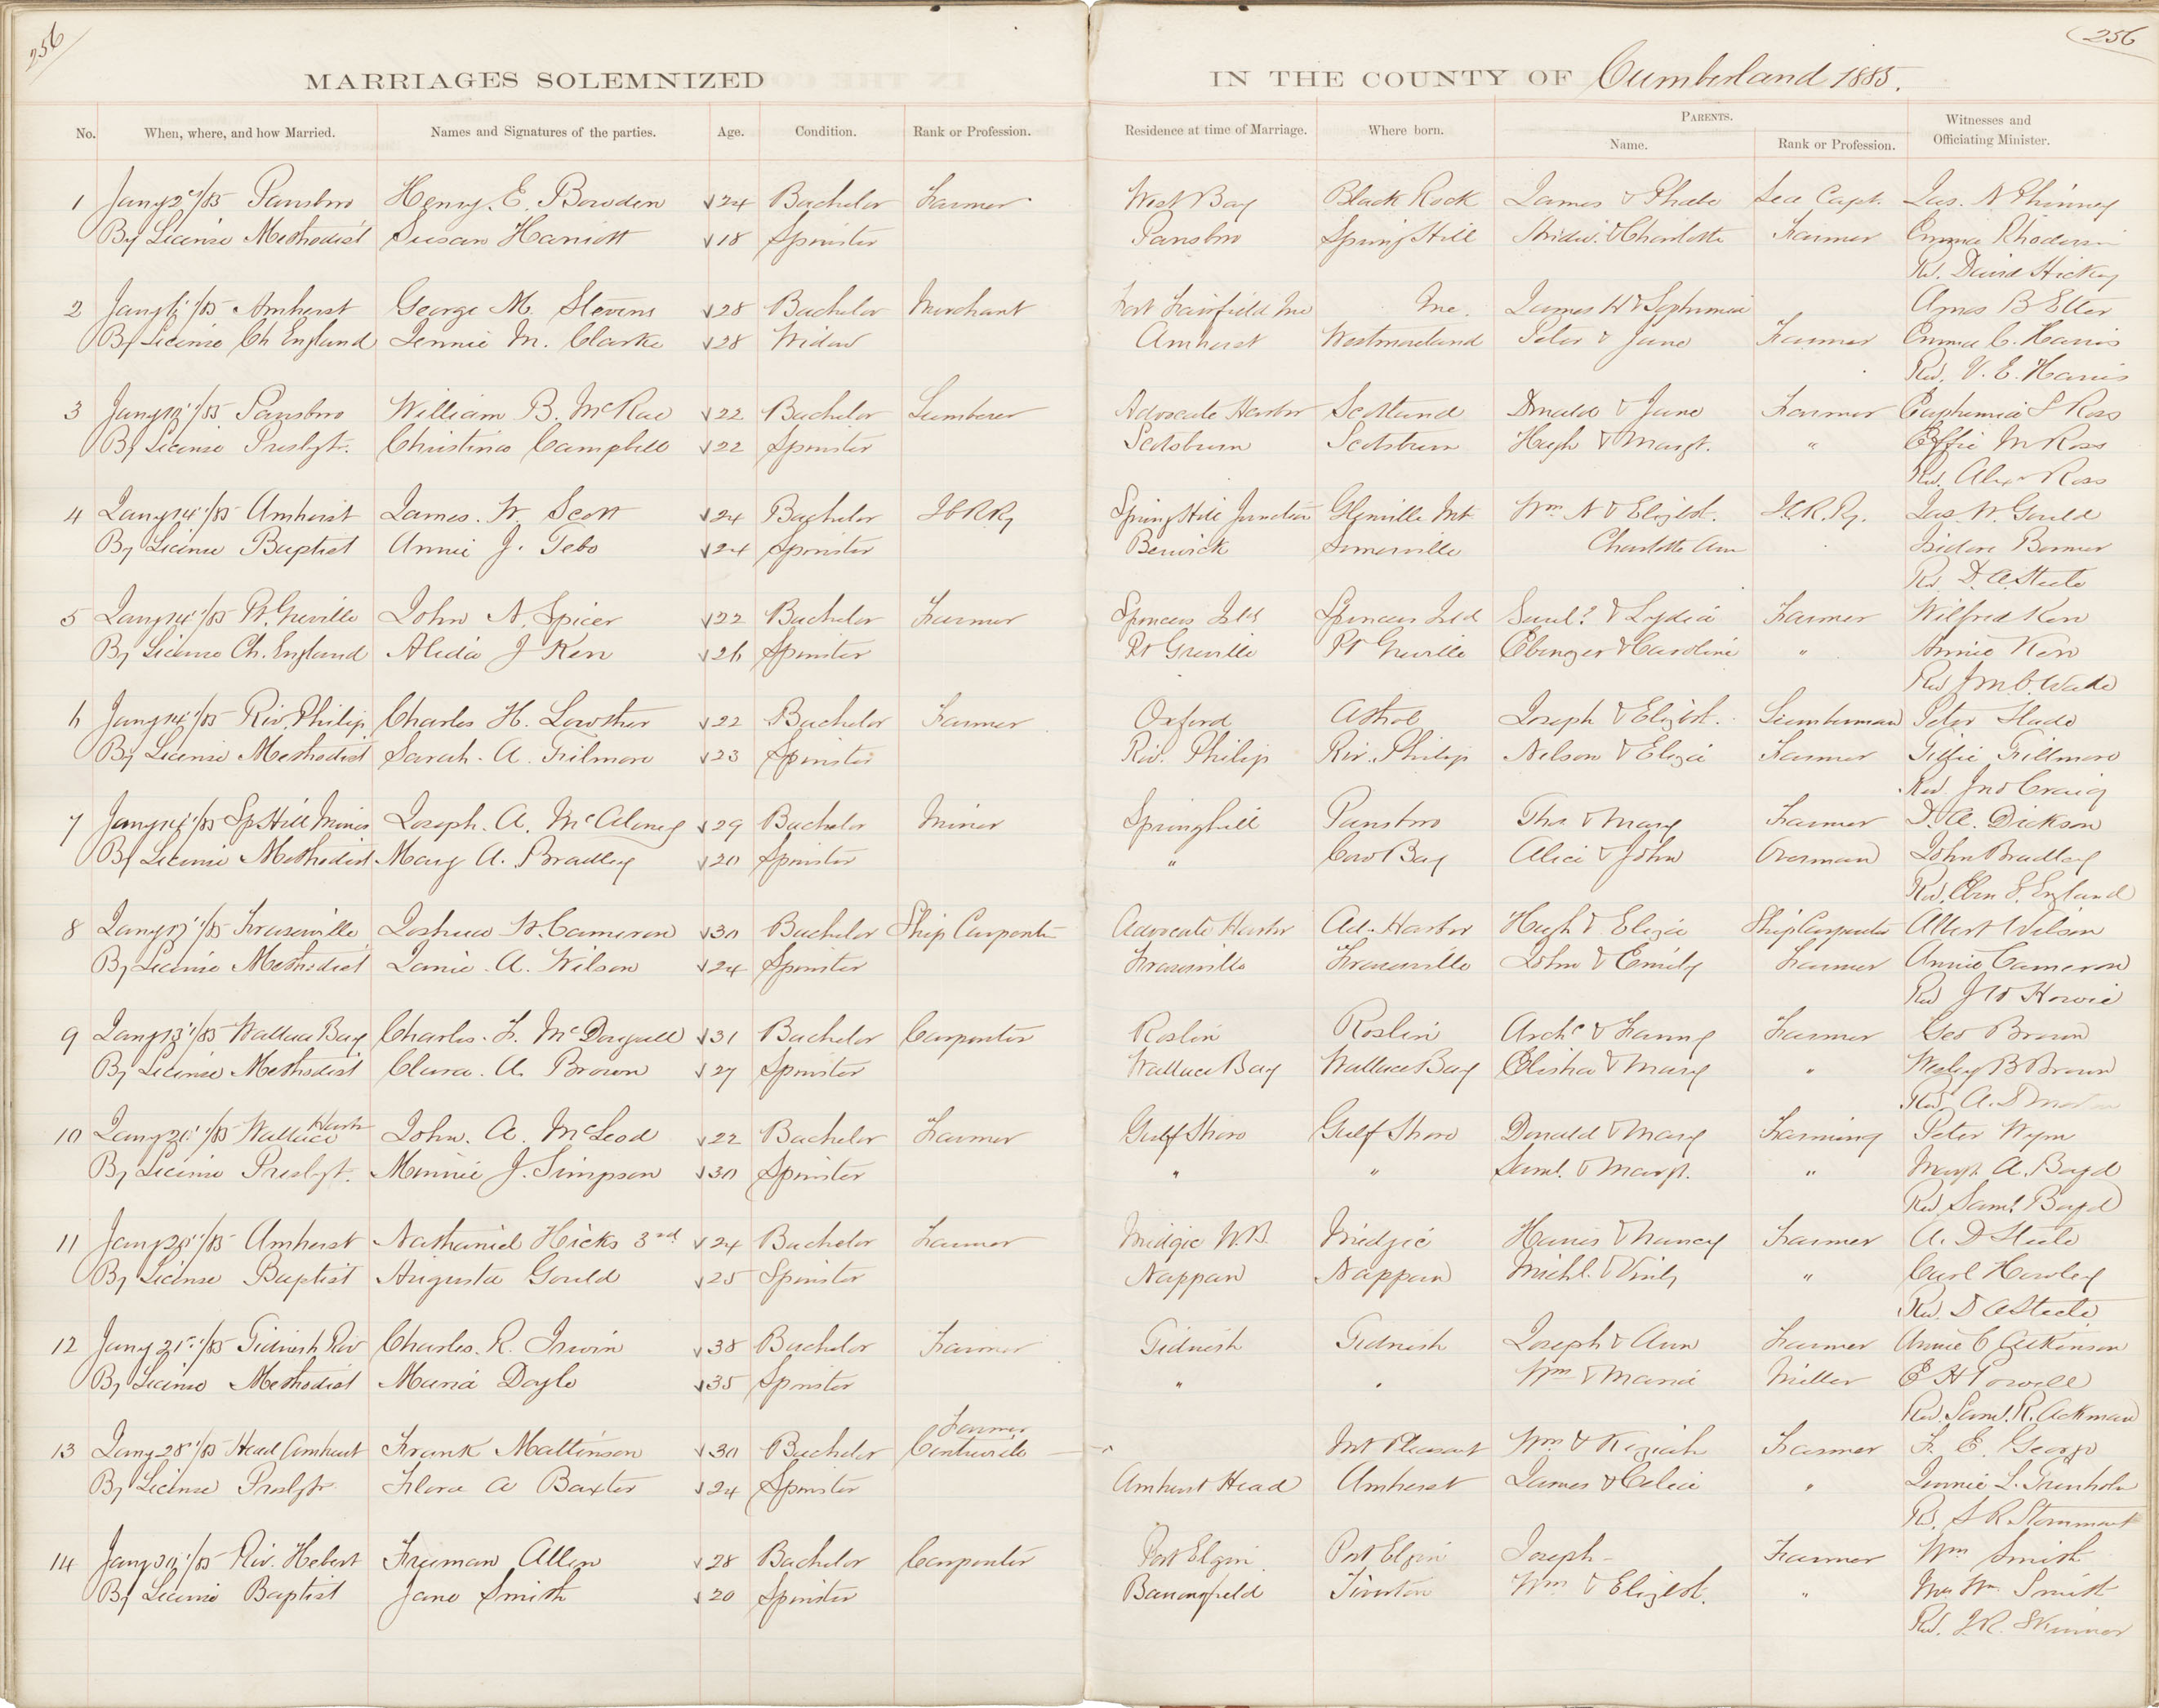 256
256
MARRIAGES SOLEMNIZED IN THE COUNTY OF Cumberland 1885.
No. When, where, and how Married. Names and Signatures of the parties. Age. Condition. Rank or Profession. Residence at time of Marriage. Where born. PARENTS. Name. Rank or Profession. Witnesses and Officiating Minister.
1 Jany 2d/85 Parrsboro Henry. E. Bowden 24 Bachelor Farmer West Bay Black Rock James & Phebe Sea Capt. Jas. N Phinney
By License Methodist Susan Harriott 18 Spinster Parrsboro Spring Hill & Charlotte Farmer Emma
Rd. David Hickey
2 Jany /85 Amherst George M. Stevens 28 Bachelor Merchant Fort Fairfield Me Me. James H & Sophronia Amos B Etter
By License Ch England Jennie M. Clarke 28 Widow Amherst Westmoreland Peter & Jane Farmer Emma C. Harris
Rev. V. E. Harris
3 Jany /85 Parrsboro William B. McRae 22 Bachelor Lumberer Advocate Harbor Scotland Donald & Jane Farmer Euphemia S Ross
By License Presbyt. Christina Campbell 22 Spinster Scotsburn Scotsburn Hugh & Margt. " Effie M Ross
Rd. Alexr Ross
4 Jany 14/85 Amherst James. W. Scott 24 Bachelor I C R Ry Spring Hill Junction Glenville Mt Wm N & Elizbt. I.C.R.Ry. Jas. W. Gould
By License Baptist Annie J. Tebo 24 Spinster Berwick Somerville Charlotte Ann Isidore Bonner
Rd. D. A. Steele
5 Jany 14/85 Pt. Greville John N. Spicer 22 Bachelor Farmer Spencers Isld Spencers Isld Saml. & Lydia Farmer Wilfred Kerr
By License Ch. England Alida J Kerr 26 Spinster Pt Greville Pt Greville Ebenezer & Caroline " Annie Kerr
Rev J M C. Wade
6 Jany 14/85 Riv. Philip Charles H. Lowther 22 Bachelor Farmer Oxford Athol Joseph & Elizbt. Lumberman Peter Slade
By License Methodist Sarah. A. Filmore 23 Spinster Riv. Philip Riv. Philip Nelson & Eliza Farmer Tillie Fillmore
Rev. Jno Craig
7 Jany 14/85 Sp Hill Mines Joseph. A. McAloney 29 Bachelor Miner Springhill Parrsboro Ths & Mary Farmer D. A. Dickson
By License Methodist Mary A. Bradley 20 Spinster " Cow Bay Alice & John Overman John Bradley
Rev. Eben E. England
8 Jany 17/85 Fraserville Joshua W. Cameron 30 Bachelor Ship Carpenter Advocate Harbor Ad. Harbor Hugh & Eliza Ship Carpenter Albert Wilson
By License Methodist Janie. A. Wilson 24 Spinster Fraserville Fraserville John & Emily Farmer Annie Cameron
Rev J W Howie
9 Jany 13/85 Wallace Bay Charles. F. McDougall 31 Bachelor Carpenter Roslin Roslin Archd & Fanny Farmer Geo Brown
By License Methodist Clara. A. Brown 27 Spinster Wallace Bay Wallace Bay Elisha & Mary " Wesley B Brown
Rev. A. D
10 Jany 20/85 Wallace Harbr John. A. McLeod 22 Bachelor Farmer Gulf Shore Gulf Shore Donald & Mary Farming Peter
By License Presbyt. Minnie J. Simpson 30 Spinster " " Saml. & Margt. " Margt. A. Boyd
Rev Saml. Boyd
11 Jany 20/85 Amherst Nathaniel Hicks 3rd 24 Bachelor Farmer Midgic N.B. Midgic Harris & Nancy Farmer A. D Steele
By License Baptist Augusta Gould 25 Spinster Nappan Nappan Michl. & " Carl Hawley
Rev. D A Steele
12 Jany 21st/85 Tidnish Riv Charles. R. Irwin 38 Bachelor Farmer Tidnish Tidnish Joseph & Ann Farmer Annie C Atkinson
By License Methodist Maria Doyle 35 Spinster " " Wm & Maria Miller E H Powell
Rev. Saml. R. Ackman
Farmer
13 Jany 28/85 Head Amherst Frank Mattinson 30 Bachelor Centreville Mt Pleasant Wm & Keziah Farmer F. E. George
By License Presbytr Flora A Baxter 24 Spinster Amherst Head Amherst James & Celia " Jennie L. Trenholm
Rd.
14 Jany /85 Riv. Hebert Freeman Allen 28 Bachelor Carpenter Port Elgin Port Elgin Joseph - Farmer Wm Smith
By License Baptist Jane Smith 20 Spinster Barronsfield Tiverton Wm & Elizbt. " Mrs Wm. Smith
Rd. I. R. Skinner